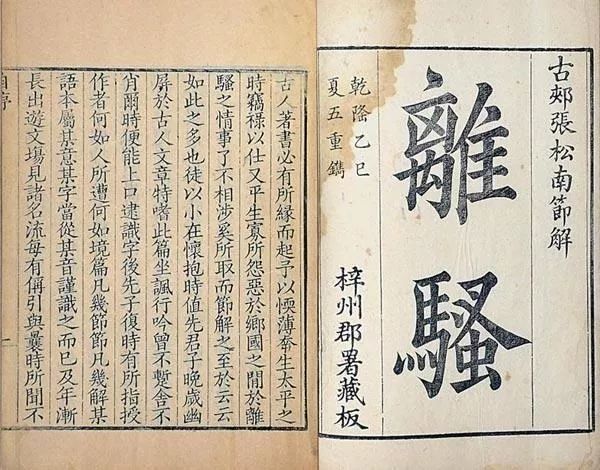 古郟張松南節解
離騷
乾隆乙巳
夏五重鐫
梓州郡署藏板
古人著書必有所緣而起予以愞薄幸生太平之
時竊祿以仕又平生寡所怨惡於鄉國之間於離
騷之情事了不相涉奚所取而節解之至於云云
如此之多也徒以小在懷抱時值先君子晚歲幽
屏於古人文章特嗜此篇坐諷行吟曾不蹔舍不
肖爾時便能上口逮識字後先子復時有所指授
作者何如人所遭何如境篇凡幾節節凡幾解某
語本屬某意某字當從某音謹識之而已及年漸
長出遊文場見諸名流每有偁引與曩時所聞不